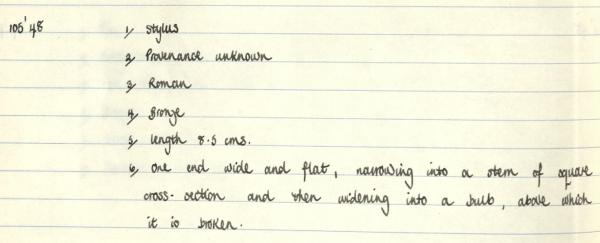 105'48 1/ Stylus
2/ Provenance unknown
3/ Roman
4/ Bronze
5/ length 8.5 cms.
6/ One end wide and flat, narrowing into a stem of square
cross-section and then widening into a bulb, above which
it is broken.